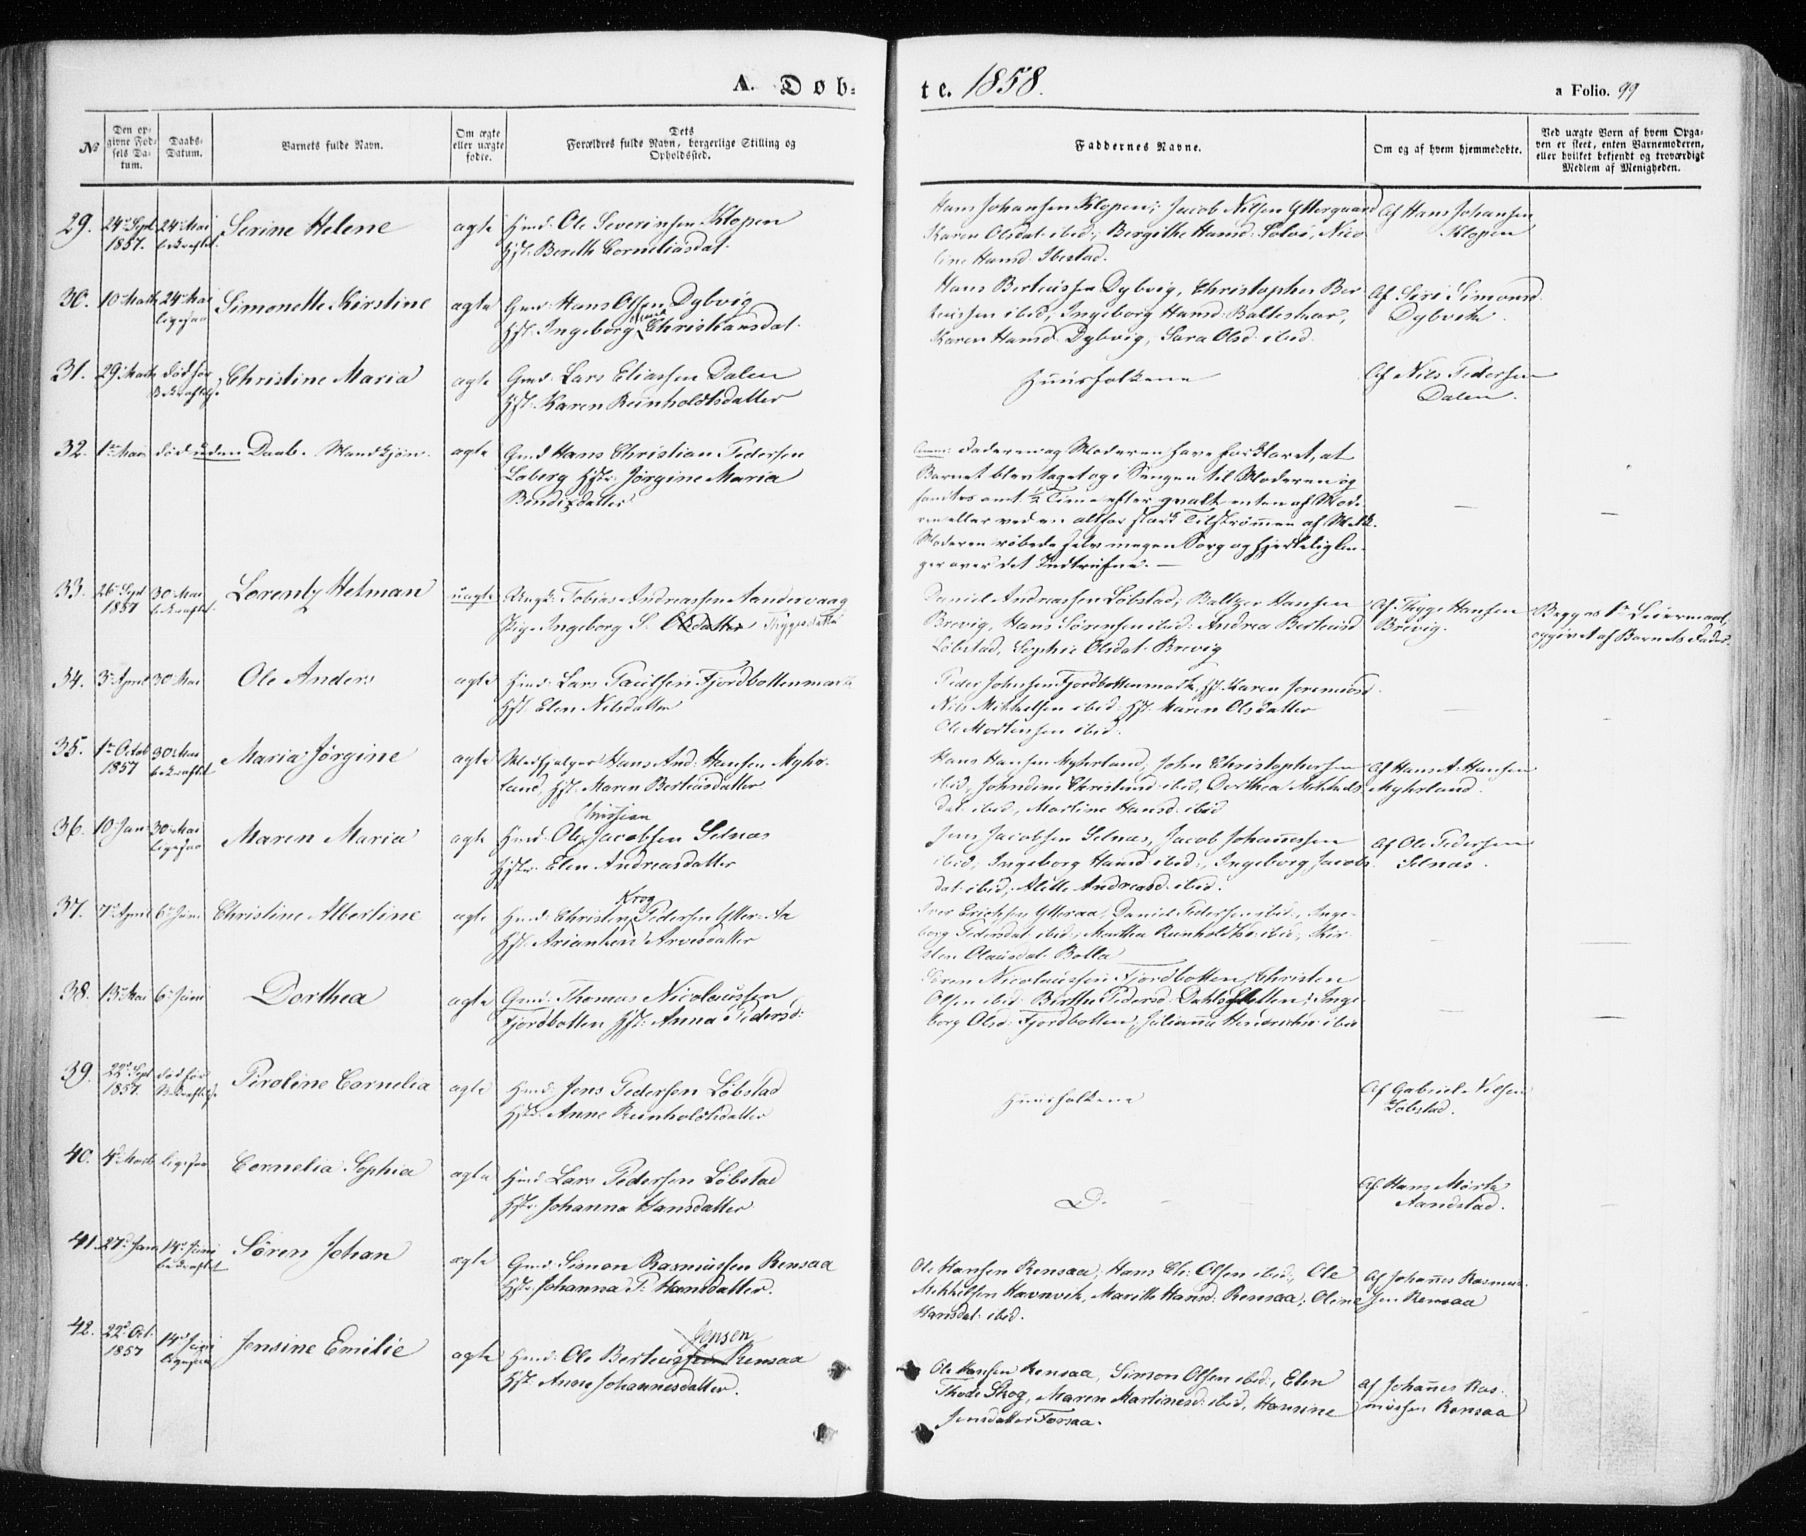 A. Døb-
te. 1858.
a Folio. 99
№
Den op-
givne Fød-
sels Da-
tum.
Daabs-
Datum.
Barnets fulde Navn.
Om ægte
eller uægte
fødte.
Dets
Forældres fulde Navn, borgerlige Stilling og
Opholdssted.
Faddernes Navne.
Om og af hvem hjemmedøbte.
Ved uægte Børn af hvem Opga-
ven er skeet, enten Barnemoderen,
eller hvilket bekjendt og troværdigt
Medlem af Menigheden.
29. 24de Sept 1857. 24de Mai bekræftet Serine Helene ægte Hmd: Ole Severinsen Klopen
Hst: Bereth Corneliasdat:
Hans Johansen Klopen; Jacob Nilsen Yttergaard
Karen Olsdat ibid; Bergithe Hansd: Solvi, Nico
line Hansd: Ibestad.
Af Hans Johansen
Klopen
30. 10de Marts 24de Mai ligesaa Simonette Kirstine ægte Gmd: Hans Olsen Dybvig
Hst. Ingeborg Christiansdat.
Hans Berteussen Dybvig, Christopher Ber
teussen ibid, Ingeborg Hansd: Balteskar,
Karen Hansd: Dybvig, Sara Olsd ibid.
Af Siri Simonsd.
Dybvik
31. 29de Marts død før Bekræftelse Christine Maria ægte Gmd: Lars Eliassen Dalen
Hst. Karen Reinholdtsdatter
Huusfolkene
Af Nils Pedersen
Dalen.
32. 1ste Mai død uden Daab. Mandkjøn. ægte Gmd Hans Christian Pedersen
Løberg Hstr. Jørgine Maria
Bendixdatter
Anm: Faderen og Moderen have forklaret, at
Barnet blev taget og i Sengen til Moderen og
fandtes omt. ½ Time efter qvalt enten af Mode-
ren eller ved en altfor stærk Tilstrømmen af Melk.
Moderen røbede selv megen Sorg og Hjertelig
over det Indtrufne. —
—
—
33. 26de Sept 1857 30 Mai bekræftet Lorentz Hetman uægte Ungk: Tobias Andreassen Aandervaag
Pige Ingeborg S. Olsdatter Tryggsdatter
Daniel Andreassen Løbstad; Baltzer Hansen
Brevig, Hans Sørensen ibid: Andrea Berteusd
Løbstad, Sophie Olsdat: Brevig
Af Trygge Hansen
Brevig.
Begges 1ste Leiermaal,
opgivet af Barnets Fader.
34. 3de April 30 Mai Ole Anders ægte Hmd: Lars Paulsen Fjordbottenmark
Hst Elen Nilsdatter
Peder Johnsen Fjordbottenmark, Hst. Karen Jeremiasd.
Nils Mikkelsen ibid Hst. Maren Olsdatter
Ole Mortensen ibid.
35. 1ste Octob 1857 30 Mai bekræftet Maria Jørgine ægte Medhjelper Hans And: Hansen Myhr-
land, Hst. Maren Berteusdatter
Hans Hansen Myhrland, John Christophersen
ibid, Christiansd ibid, Dorthea Mikkels
dat ibid, Martine Hansd: ibid
Af Hans A: Hansen
Myhrland.
36. 10 Jan 30 Mai ligesaa Maren Maria ægte Hmd: Ole Christian Jacobsen Selnæs
Hstr. Elen Andreasdatter
Jens Jacobsen Selnæs, Jacob Johannessen
ibid, Ingeborg Hansd ibid:, Ingeborg Jacobs
dat ibid, Alette Andreasd. ibid.
Af Ole Pedersen
Selnæs.
37. 7de April 6te Juni Christine Albertine ægte Hmd: Christen Krog Pedersen Ytter-Aa
Hst. Arianken Arvesdatter
Iver Erichsen Ytteraa, Daniel Pedersen ibid, Inge-
borg Pedersdat ibid, Martha Reinholdtsd: ibid, Kir-
sten Clausdat: Bolla
38. 13de Mai 6te Juni Dorthea ægte Gmd: Thomas Nicolaussen
Fjordbotten Hst. Anna Pedersd:
Søren Nicolaussen Fjordbotten, Christen
Olsen ibid: Berthe Pedersd: Dahlsletten, Inge-
borg Olsd: Fjordbotten, Julianna ibid
39. 22de Sept 1857. død før Bekræftelse Peroline Cornelia ægte Hmd: Jens Pedersen Løbstad
Hstr: Anne Reinholdtsdatter
Huusfolkene
Af Gabriel Nilsen
Løbstad.
40. 4de Marts ligesaa Cornelia Sophia ægte Hmd Lars Pedersen Løbstad
Hstr: Johanna Hansdatter
Do.
Af Hans Mørk
Aandstad.
41. 27de Jan 14de Juni bekræftet Søren Johan ægte Gmd: Simon Rasmussen Rensaa
Hstr. Johanna P. Hansdatter.
Ole Hansen Rensaa, Hans Chr: Olsen ibid, Ole
Mikkelsen Havnvik, Marith Hansd: Rensaa, Oline
Hansdat: ibid.
Af Johannes Rasmus-
sen Rensaa
42. 22de Oct. 1857 14de Juni ligesaa Jensine Emilie ægte Hmd: Ole Berteussen Jensen Rensaa
Hst. Anne Johannesdatter.
Ole Hansen Rensaa, Simon Olsen ibid, Elen
Thode Skog, Maren Martinesd: ibid, Hansine
Jensdatter Forsaa.
Af Johannes Ras-
mussen Rensaa